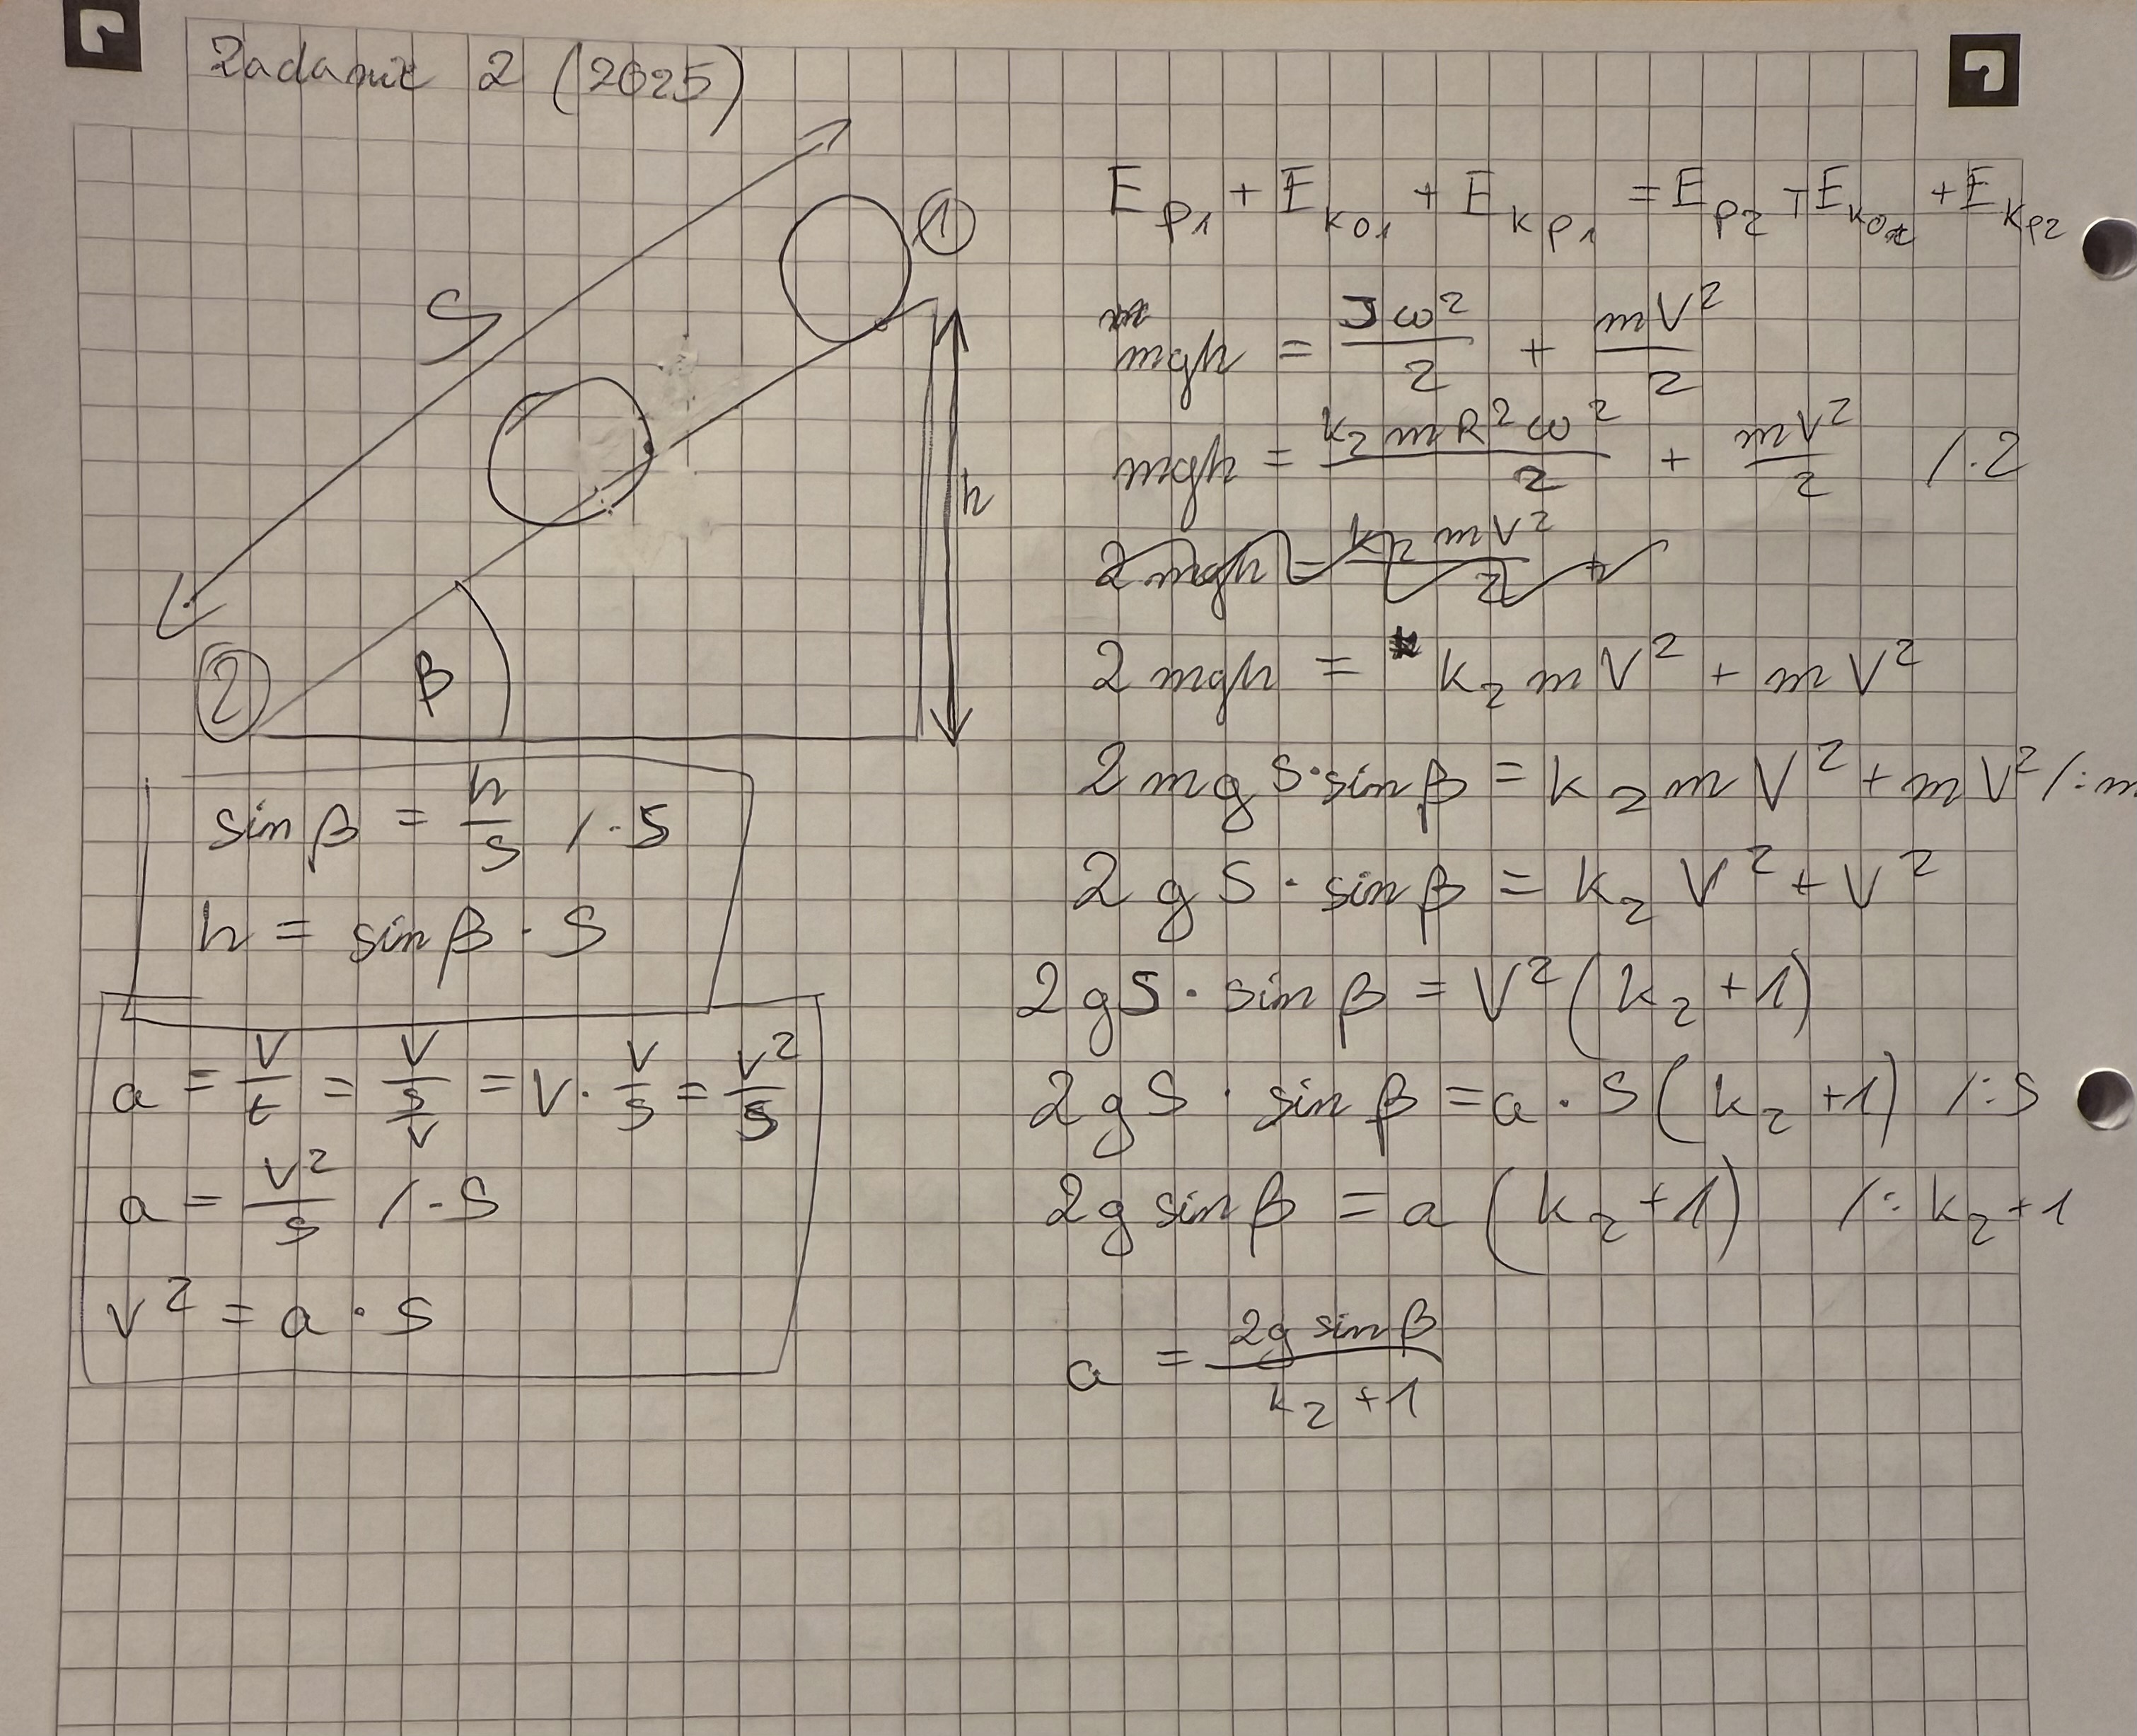 Zadanie 2 (2025)
S
1
h
2
β
sin β = h/s /·s
h = sin β · S
a = V/t = V/(s/v) = V · V/s = V²/s
a = V²/s /·S
V² = a · s
E_p1 + E_ko1 + E_kp1 = E_p2 + E_ko2 + E_kp2
mgh = Jω²/2 + mV²/2
mgh = k₂mR²ω²/2 + mV²/2 /·2
2mgh = k₂mV²/2 +
2mgh = k₂mV² + mV²
2mgS·sinβ = k₂mV² + mV² /:m
2gS·sinβ = k₂V² + V²
2gS·sinβ = V²(k₂+1)
2gS·sinβ = a·S(k₂+1) /:S
2g sinβ = a(k₂+1) /:k₂+1
a = 2g sinβ/k₂+1